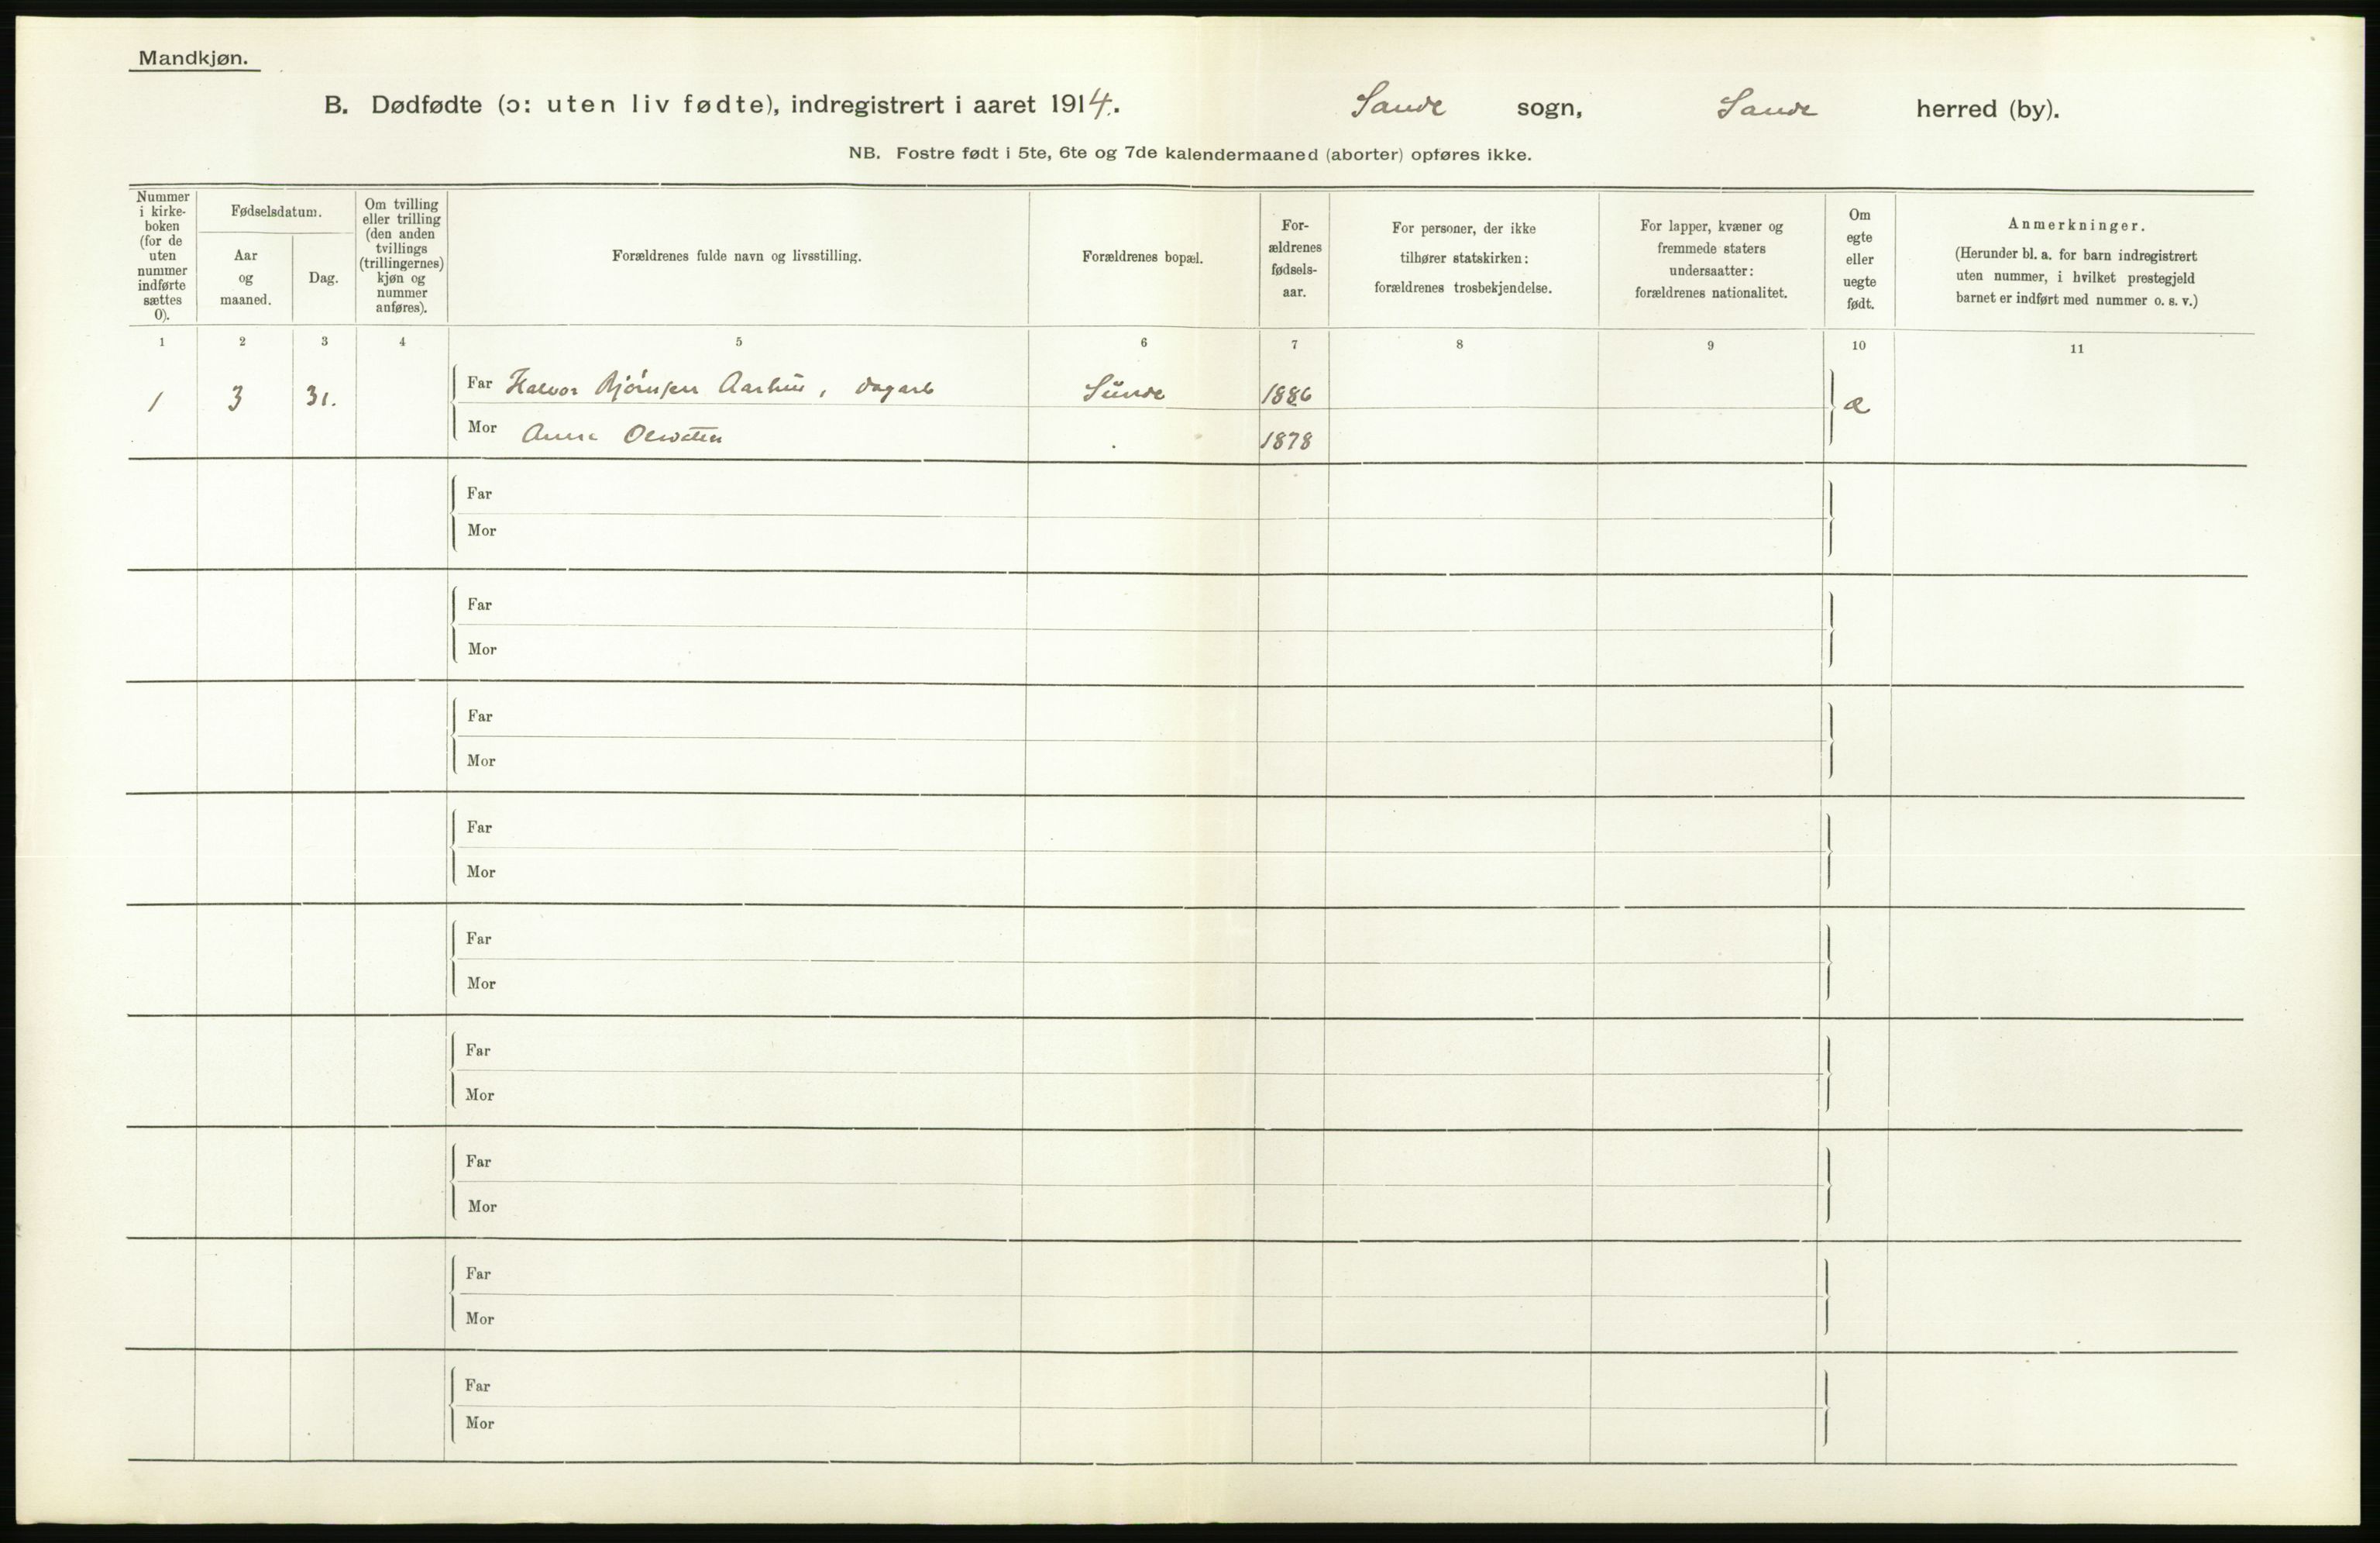 Mandkjøn.
B. Dødfødte (ɔ: uten liv fødte), indregistrert i aaret 1914. Sande sogn, Sande herred (by).
NB. Fostre født i 5te, 6te og 7de kalendermaaned (aborter) opføres ikke.
Nummer
i kirke-
boken
(for de
uten
nummer
indførte
sættes
0).
Fødselsdatum.
Aar
og
maaned.
Dag.
Om tvilling
eller trilling
(den anden
tvillings
(trillingernes)
kjøn og
nummer
anføres).
Forældrenes fulde navn og livsstilling.
Forældrenes bopæl.
For-
ældrenes
fødsels-
aar.
For personer, der ikke
tilhører statskirken:
forældrenes trosbekjendelse.
For lapper, kvæner og
fremmede staters
undersaatter:
forældrenes nationalitet.
Om
egte
eller
uegte
født.
Anmerkninger.
(Herunder bl. a. for barn indregistrert
uten nummer, i hvilket prestegjeld
barnet er indført med nummer o. s. v.)
1 2 3 4 5 6 7 8 9 10 11
1 3 31. Far Halvor Bjørnsen Aarhus, dagarb 1886 e
Mor Anna 1878
Far
Mor
Far
Mor
Far
Mor
Far
Mor
Far
Mor
Far
Mor
Far
Mor
Far
Mor
Far
Mor